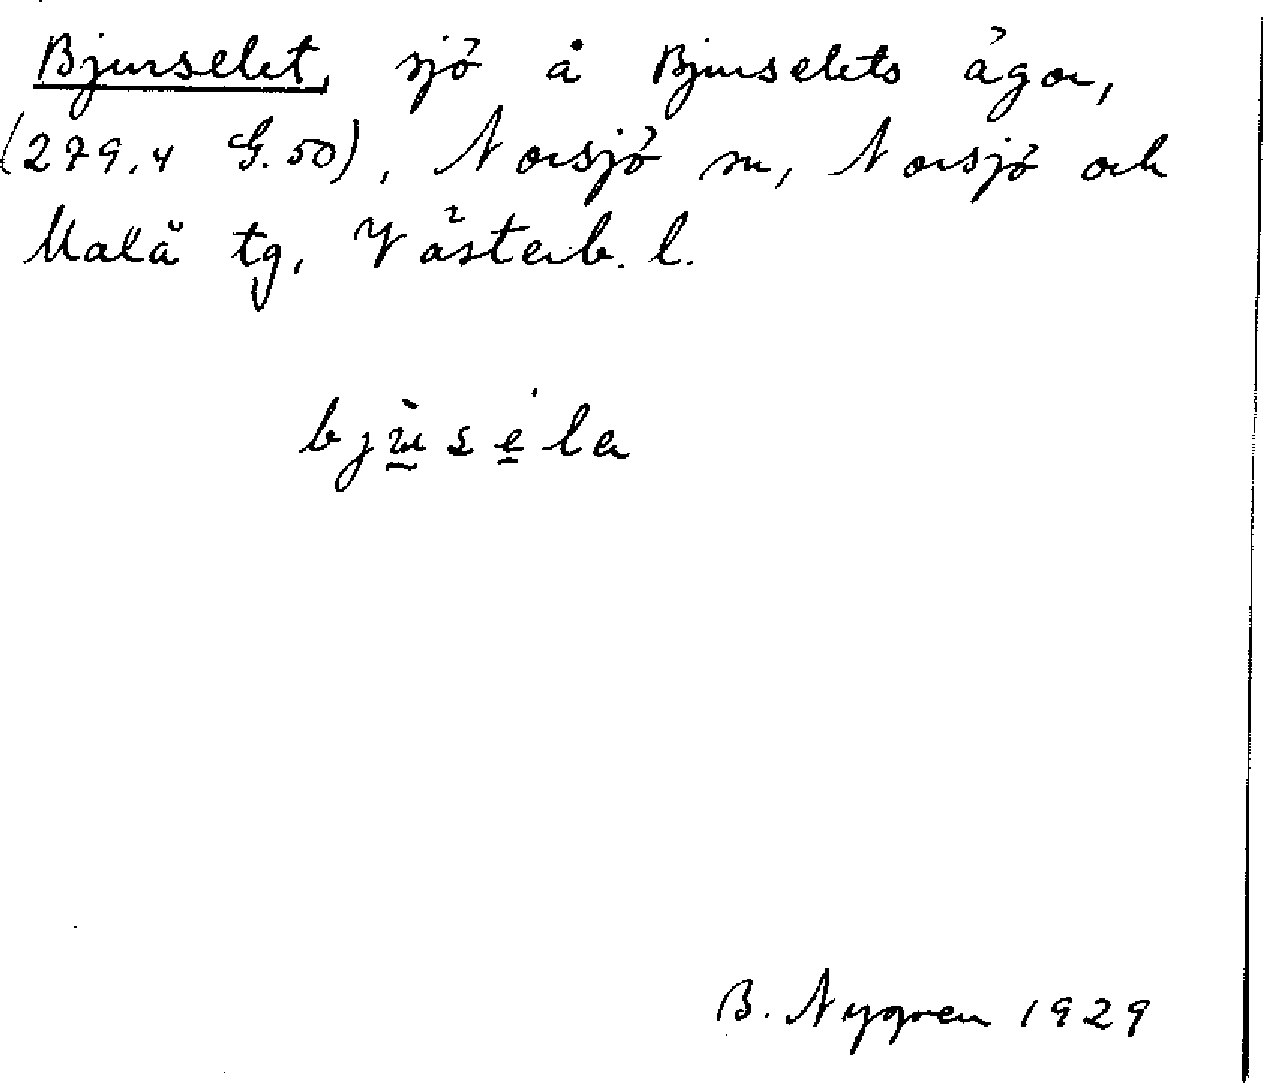 Bjurselet, sjö å Bjurselets ägor,
(279,4 G.50), Norsjö sn, Norsjö och
Malå tg, Västerb. l.
bjùséla
B. Nygren 1929